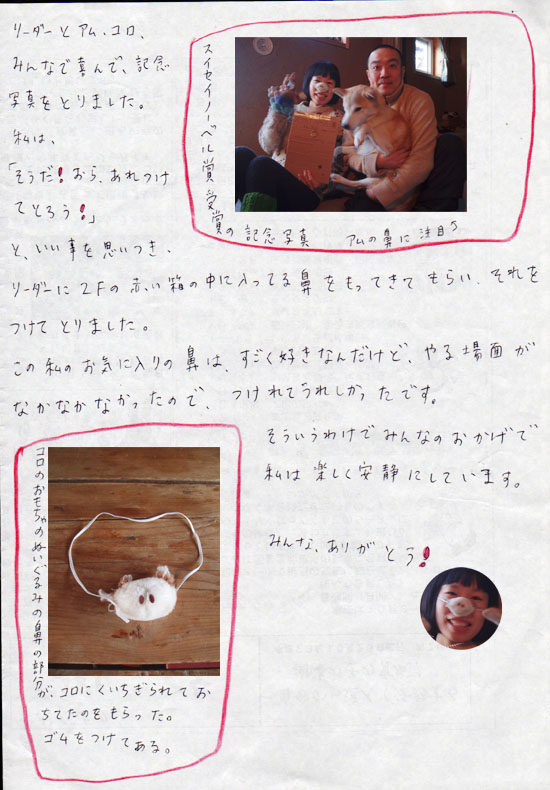 リーダーとアム・コロ、
みんなで喜んで、記念
写真をとりました。
私は、
「そうだ！おら、あれつけ
てとろう！」
と、いい事を思いつき、
スイセイノーベル賞受賞の記念写真
アムの鼻に注目
リーダーに2Fの赤い箱の中に入ってる鼻をもってきてもらい、それを
つけてとりました。
この私のお気に入りの鼻は、すごく好きなんだけど、やる場面が
なかなかなかったので、つけれてうれしかったです。
そういうわけでみんなのおかげで
私は楽しく安静にしています。
みんな、ありがとう！
コロのおもちゃのぬいぐるみの鼻の部分
が、コロにくいちぎられてお
ちてたのをもらった。
ゴムをつけてある。